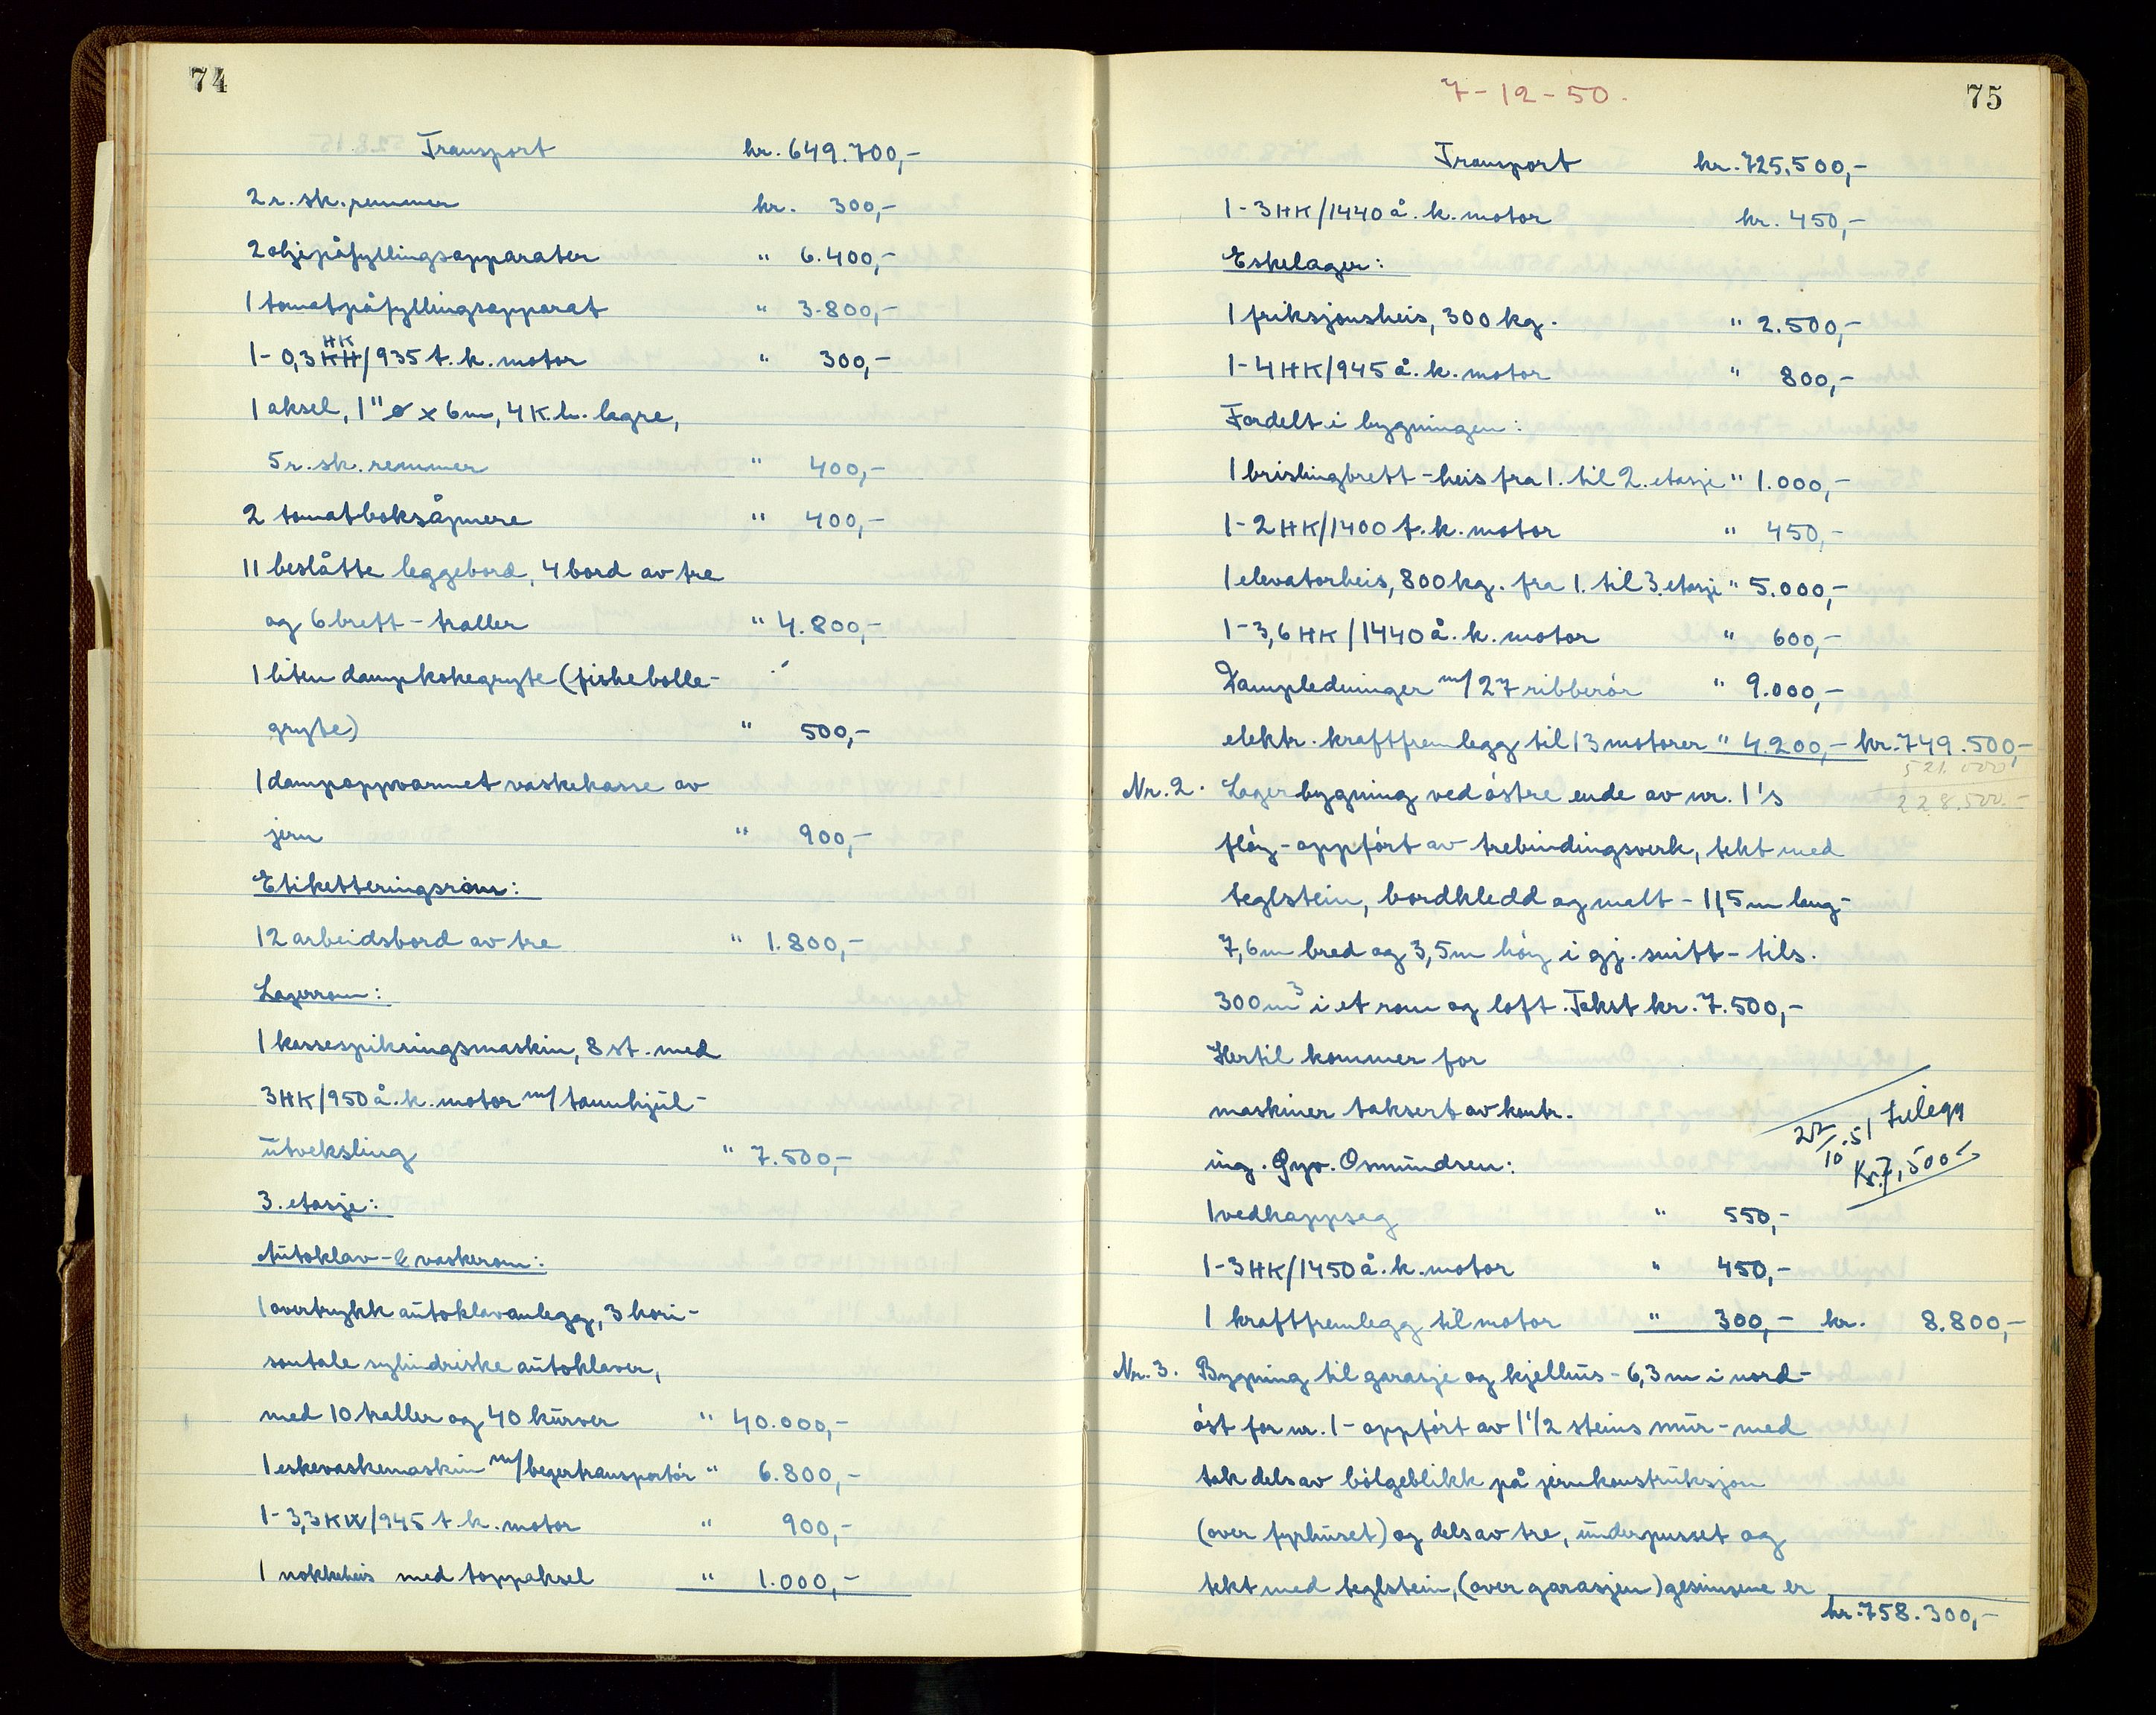 74
Transport kr. 649.700,-
2 r. sk. remmer kr. 300,-
2 oljepåfyllingsapparater " 6.400,-
1 tomatpåfyllingsapparat " 3.800,-
HK
1 - 0,3 KH/935 t. k. motor " 300,-
1 aksel, 1" ø x 6 m, 4 K. l. lagre,
5 r. sk. remmer " 400,-
2 tomatboksåpnere " 400,-
11 beslåtte leggebord, 4 bord av tre
og 6 brett - traller " 4.800,-
1 liten dampkokegryte (fiskebolle-
gryte) " 500,-
1 dampoppvarmet vaskekasse av
jern " 900,-
Etiketteringsrom:
12 arbeidsbord av tre " 1.800,-
Lagerrom:
1 kassespikringsmaskin, 8 st. med
3 HK/950 å. k. motor m/ tannhjul-
utveksling " 7.500,-
3. etasje:
Autoklav- & vaskerom:
1 overtrykk autoklavanlegg, 3 hori-
sontale sylindriske autoklaver,
med 10 traller og 40 kurver " 40.000,-
1 eskevaskemaskin m/ begertransportör " 6.800,-
1 - 3,3 KW/945 t. k. motor " 900,-
1 nokkeheis med toppaksel " 1.000,-
7 - 12 - 50.
75
Transport kr. 725.500,-
1 - 3 HK/1440 å. k. motor kr. 450,-
Eskelager:
1 friksjonsheis, 300 kg. " 2.500,-
1 - 4 HK/945 å. k. motor " 800,-
Fordelt i bygningen:
1 brislingbrett - heis fra 1. til 2. etasje " 1.000,-
1 - 2 HK/1400 t. k. motor " 450,-
1 elevatorheis, 800 kg. fra 1. til 3. etasje " 5.000,-
1 - 3,6 HK/1440 å. k. motor " 600,-
Dampledninger m/ 27 ribberör " 9.000,-
elektr. kraftfremlegg til 13 motorer " 4.200,- kr. 749.500,-
521.000
Nr. 2. Lagerbygning ved östre ende av nr. 1's
228.500.-
flöy - oppfört av trebindingsverk, tekt med
teglstein, bordkledd og malt - 11,5 m lang -
7,6 m bred og 3,5 m höy i gj. snitt - tils.
300 m³ i et rom og loft. Takst kr. 7.500,-
Hertil kommer for
maskiner taksert av kontr.
ing. Gyv. Osmundsen:
22/10.51 tillegg
Kr. 7,500.-
1 vedkappsag " 550,-
1 - 3 HK/1450 å. k. motor " 450,-
1 kraftfremlegg til motor " 300,- kr. 8.800,-
Nr. 3. Bygning til garasje og kjelhus - 6,3 m i nord-
öst for nr. 1 - oppfört av 1 1/2 steins mur - med
tak dels av bölgeblikk på jernkonstruksjon
(over fyrhuset) og dels av tre, underpusset og
tekt med teglstein, (over garasjen) gesimsene er
kr. 758.300,-